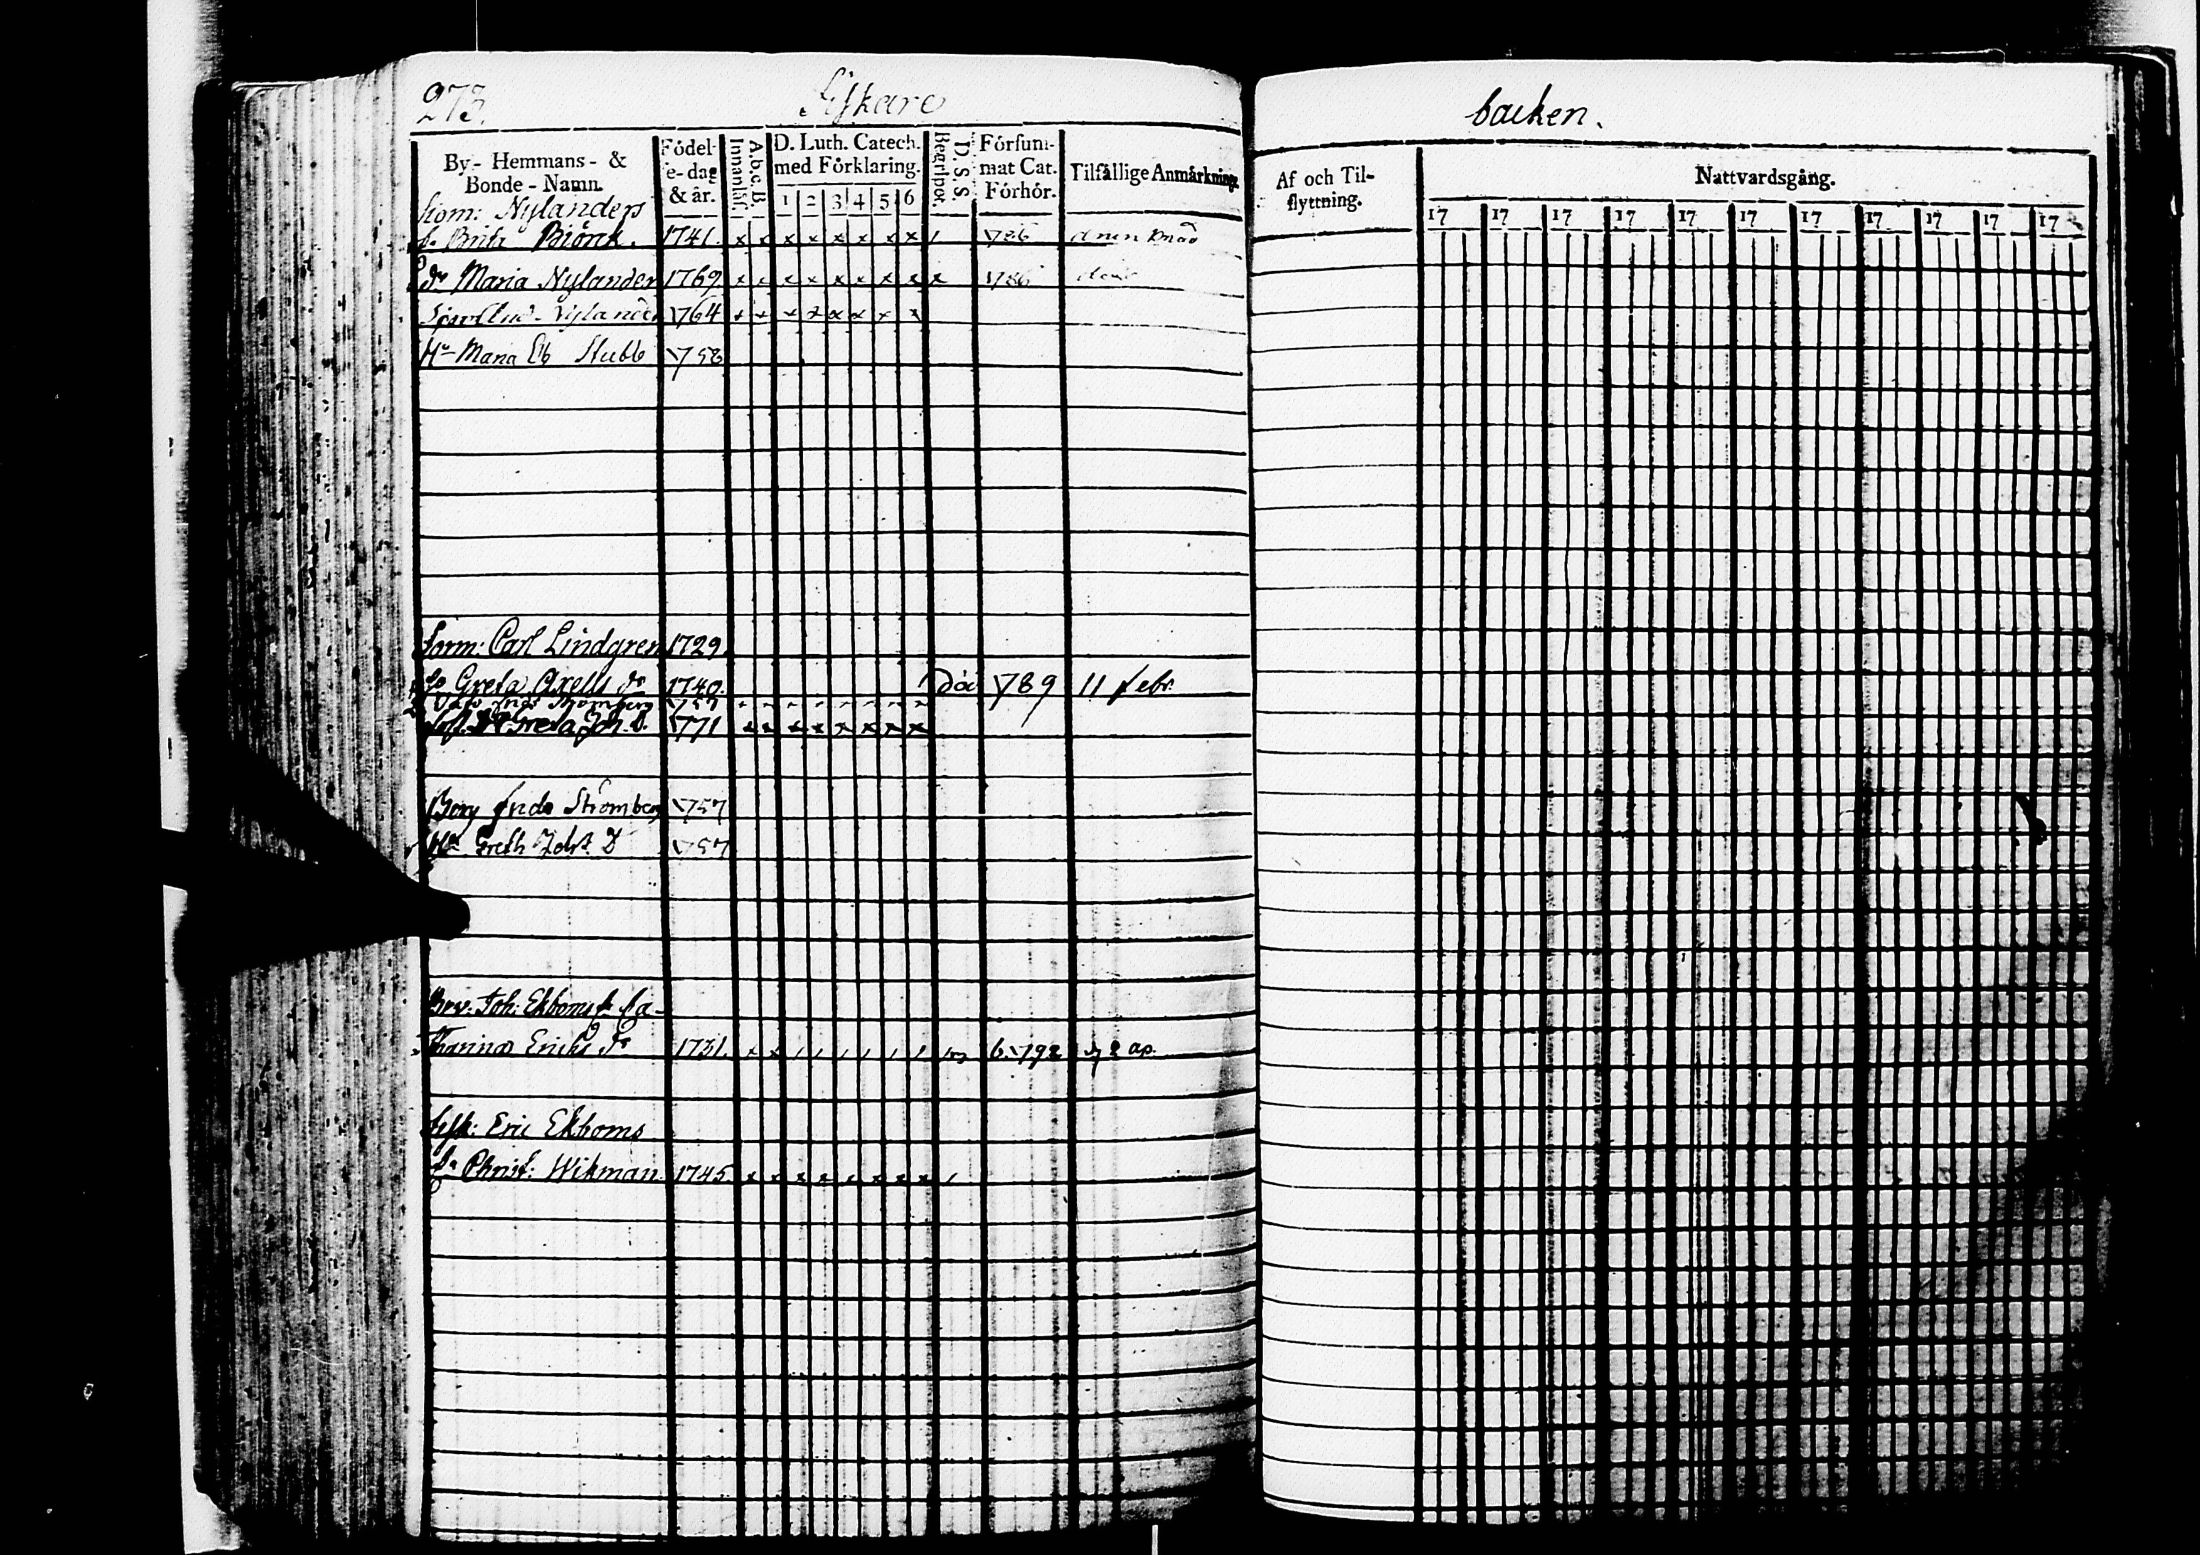 273.
Fiskare
By- Hemmans- &
Bonde-Namn.
Födel-
se-dag
& år.
Innanläs.
A.b.c.B.
D. Luth. Catech.
med Förklaring.
1 2 3 4 5 6
Begripet
D. S. S.
Försum-
mat Cat.
Förhör.
Tilfällige Anmärkning.
Skom: Nylanders
Brita Björck. 1741. x x x x x x x x 1 786
dr Maria Nylander 1769. x x x x x x x x x 786
Nylander 764 x x x x x x x x
Hu Maria Stubb 758
Carl Lindgren 1729
Greta Axells dr 1740. död 789 11 febr.
Strömberg 757
Greta Joh. D. 771 x x x x x x x x
Borg Strömberg 757
Hu Greth D 757
Joh: Ekboms Ca-
tharina Erichs dr 1731. x x 6 792 ap.
Fisk: Eric Ekboms
Christ: Wikman. 1745 x x x x x x x
backen.
Af och Til-
flyttning.
Nattvardsgång.
17 17 17 17 17 17 17 17 17 17 17